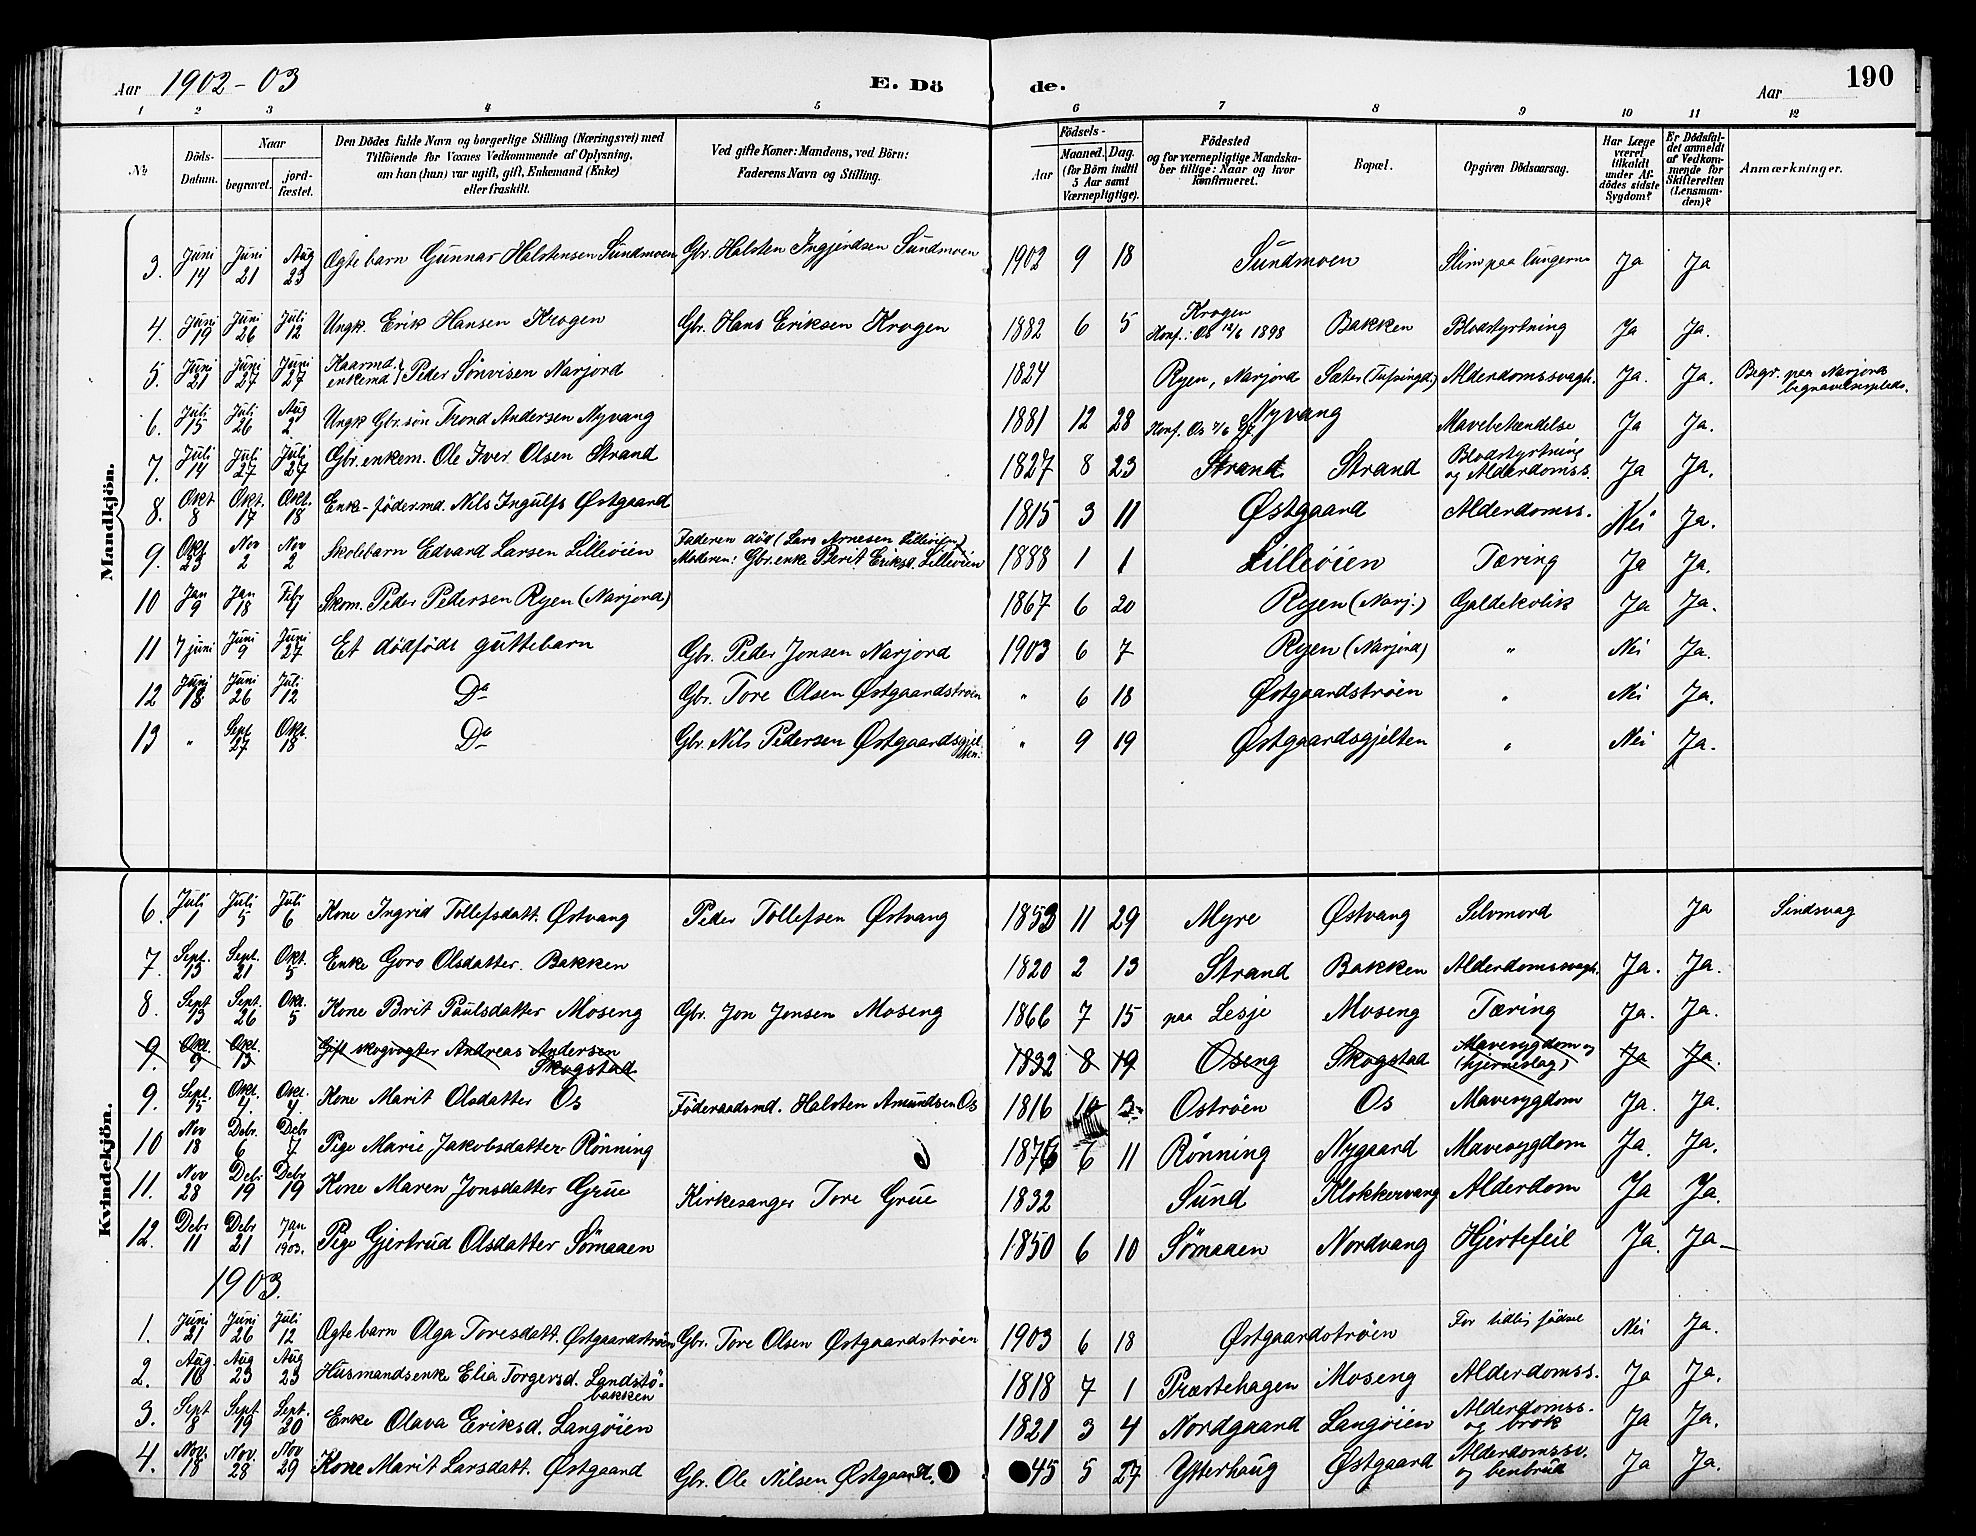 Aar 1902-03 E. Dö de. Aar 190
1 2 3 4 5 6 7 8 9 10 11 12
№ Döds-Datum. Naar begravet. jordfæstet. Den Dödes fulde Navn og borgerlige Stilling (Næringsvei) med Tilföiende for Voxnes Vedkommende af Oplysning, om han (hun) var ugift, gift, Enkemand (Enke) eller fraskilt. Ved gifte Koner: Mandens, ved Börn: Faderens Navn og Stilling. Födsels- Aar Maaned. Dag. (for Börn indtil 5 Aar samt Værnepligtige). Födested og for værnepligtige Mandskaber tillige: Naar og hvor konfirmeret. Bopæl. Opgiven Dödsaarsag. Har Læge været tilkaldt under Afdödes sidste Sygdom? Er Dödsfaldet anmeldt af Vedkommende for Skifteretten (Lensmanden)? Anmærkninger.
Mandkjön.
3. Juni 14 Juni 21 Aug 23 Ægte barn Gunnar Halstensen Sundmoen Gbr. Halsten Ingjerdsen Sundmoen 1902 9 18 Sundmoen Slim paa lungerne Ja Ja
4. Juni 19 Juni 26 Juli 12 Ungk. Erik Hansen Krogen Gbr. Hans Eriksen Krogen 1882 6 5 Krogen Konf.: Os 12/6 1898 Bakken Blodstyrtning Ja Ja.
5. Juni 21 Juni 27 Juni 27 Kaarmd. enkemd } Peder Sönvisen Narjord 1824 Ryen, Narjord Sæter (Tufsingd.) Alderdomssvagh. Ja. Ja. Begr. paa Narjords begravelsesplads.
6. Juli 15 Juli 26 Aug 2 Ungk Gbr. søn Trond Andersen Nyvang 1881 12 28 Nyvang Konf. Os Mavebetændelse Ja Ja.
7. Juli 14 Juli 27 Juli 27 Gbr. enkem. Ole Iver Olsen Strand 1827 8 23 Strand Strand Blodstyrtning og Alderdomss. Ja Ja.
8. Okt 8 Okt. 17 Okt. 18 Enke-föder.md. Nils Ingulfs Østgaard 1815 3 11 Østgaard Alderdomss. Nei Ja.
9. Okt 23 Nov 2 Nov 2 Skolebarn Edvard Larsen Lilleøien Faderen död (Lars Arnesen Lilleøien) Moderen: Gbr. enke Berit Eriksd. Lilleøien 1888 1 1 Lilleøien Tæring Ja Ja.
10 Jan 9 Jan 18 Febr 4 Skom. Peder Pedersen Ryen (Narjord) 1867 6 20 Ryen (Narj.) Galdekolik Ja Ja.
11 7 juni Juni 9 Juni 27 Et dödfödt guttebarn Gbr. Peder Jonsen Narjord 1903 6 7 Ryen (Narjord) " Nei Ja.
12 Juni 18 Juni 26 Juli 12 Do Gbr. Tore Olsen Østgaardstrøen " 6 18 Østgaardstrøen " Nei Ja.
13 " Sept 27 Okt. 18 Do Gbr. Nils Pedersen Østgaardsgjelten. " 9 19 Østgaardsgjelten " Nei Ja.
Kvindekjön.
6. Juli 1 Juli 5 Juli 6 Kone Ingrid Tollefsdatt. Østvang Peder Tollefsen Østvang 1853 11 29 Myre Østvang Selvmord Ja Sindsvag
7. Sept. 13 Sept. 21 Okt. 5 Enke Goro Olsdatter Bakken 1820 2 13 Strand Bakken Alderdomssvagh. Ja. Ja.
8 Sept 13 Sept. 26 Okt. 5 Kone Brit Paulsdatter Moseng Gbr. Jon Jonsen Moseng 1866 7 15 paa Lesje Moseng Tæring Ja. Ja.
9. Okt. 9 Okt. 13 Gift skogvogter Andreas Andersen Skogstad 1832 8 19 Oseng Skogstad Mavesygdom og (hjerneslag) Ja Ja.
9. Sept. 25 Okt. 4. Okt. 4. Kone Marit Olsdatter Os Föderaadsmd. Halsten Amundsen Os 1816 Ostrøen Os Mavesygdom Ja. Ja.
10 Nov 18 Debr. 6 Debr 7 Pige Marie Jakobsdatter Rönning 1876 6 11 Rönning Nygaard Mavesygdom Ja. Ja.
11. Nov 28 Debr 19 Debr 19 Kone Maren Jonsdatter Grue Kirkesanger Tore Grue 1832 Sund Klokkervang Alderdom Ja Ja.
12. Debr 11 Debr 21 Jan 1903. Pige Gjertrud Olsdatter Sömaaen 1850 6 10 Sömaaen Nordvang Hjertefeil Ja. Ja
1903.
1. Juni 21 Juni 26 Juli 12 Ægte barn Olga Toresdatt. Østgaardstrøen Gbr. Tore Olsen Østgaardstrøen 1903 6 18 Østgaardstrøen For tidlig födsel Nei Ja.
2. Aug. 16 Aug 23 Aug 23 Husmandsenke Elia Torgersd. Landstöbakken 1818 7 1 Præstehagen Moseng Alderdomss. Ja Ja.
3. Sept 8 Sept. 19 Sept. 20 Enke Olava Eriksd. Langøien 1821 3 4 Nordgaard Langøien Alderdomss. og brok Ja Ja.
4. Nov. 18 Nov. 28 Nov 29 Kone Marit Larsdatt. Østgaard Gbr. Ole Nilsen Østgaard. 45 5 27 Ytterhaug Østgaard Alderdomssv. og benbrud Ja Ja.